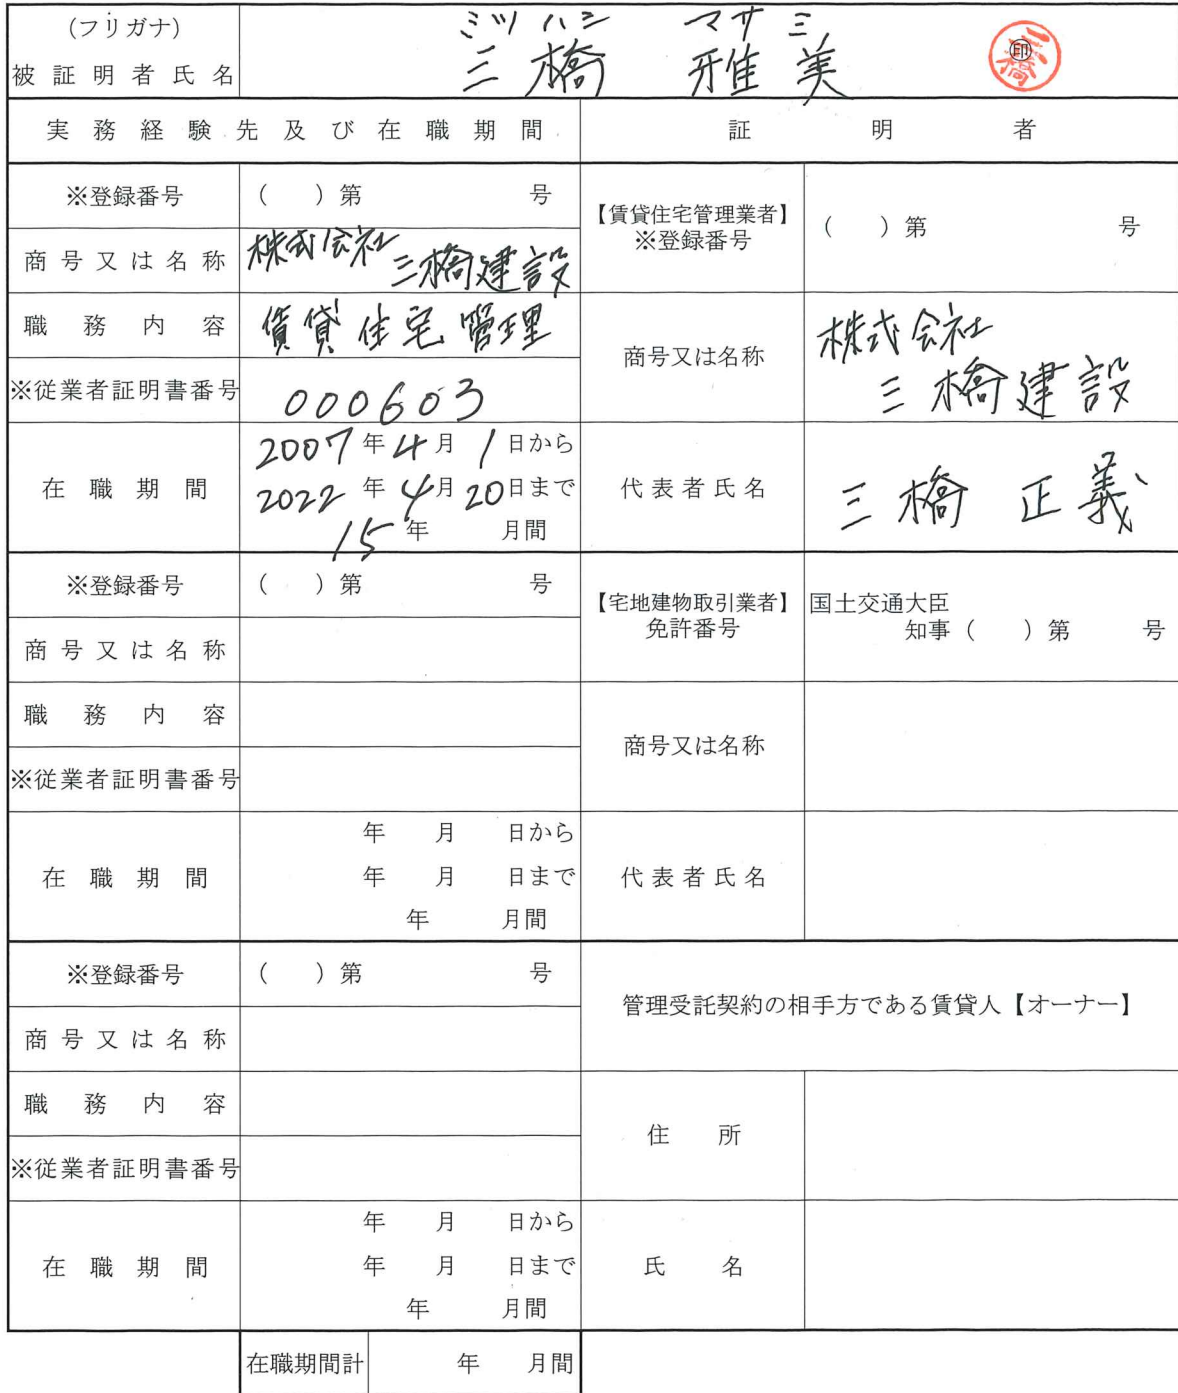 (フリガナ) ミツハシ マサミ
被証明者氏名 三橋 雅美 ㊞ 三橋
実務経験先及び在職期間 証明者
※登録番号 ( )第 号
【賃貸住宅管理業者】 ※登録番号 ( )第 号
商号又は名称 株式会社 三橋建設
職務内容 賃貸住宅管理
商号又は名称 株式会社 三橋建設
※従業者証明書番号 000603
在職期間 2007年4月1日から
2022年4月20日まで
15年 月間
代表者氏名 三橋 正義
※登録番号 ( )第 号
【宅地建物取引業者】 免許番号 国土交通大臣
知事( )第 号
商号又は名称
職務内容
商号又は名称
※従業者証明書番号
在職期間 年 月 日から
年 月 日まで
年 月間
代表者氏名
※登録番号 ( )第 号
管理受託契約の相手方である賃貸人【オーナー】
商号又は名称
職務内容
住所
※従業者証明書番号
在職期間 年 月 日から
年 月 日まで
年 月間
氏名
在職期間計 年 月間